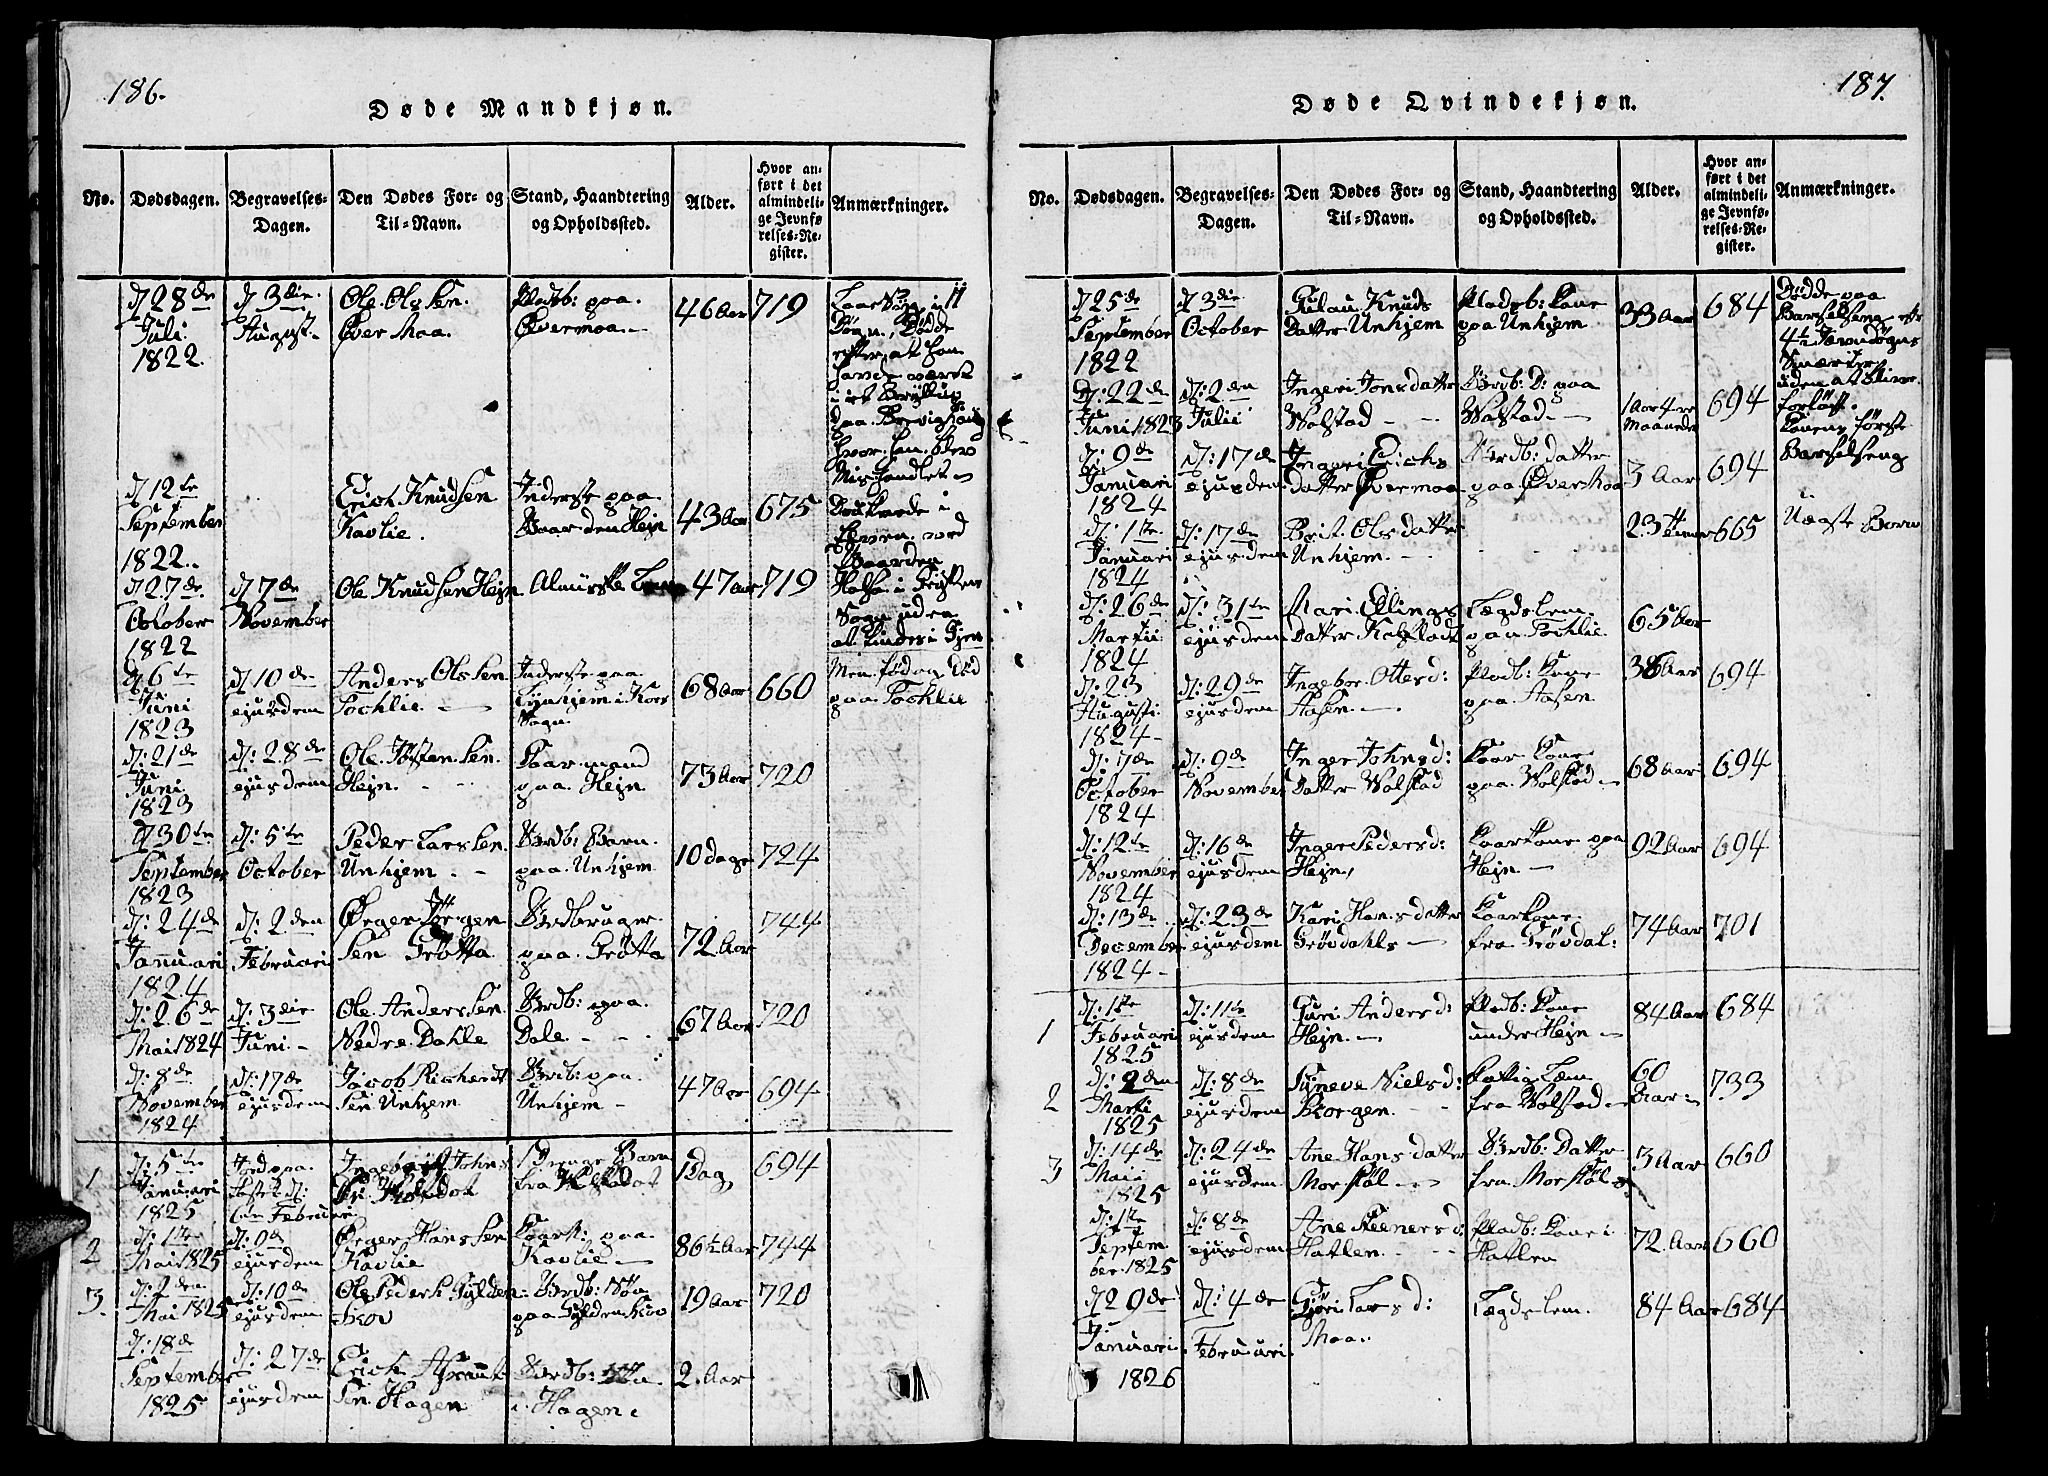 186.
Døde Mandkjøn.
No.
Dødsdagen.
Begravelses-
Dagen.
Den Dødes For- og
Til-Navn.
Stand, Haandtering
og Opholdssted.
Alder.
Hvor an-
ført i det
almindeli-
ge Jevnfø-
relses-Re-
gister.
Anmærkninger.
d 28de
Juli
1822.
d 3die
August
Ole Olsen
Øvermoa.
Pladsb: paa
Øvermoa.
46 Aar
719
Døgn, Døde
efter at han
havde været
i et Bryllup
paa
hvor han blev
Mishandlet
d 12te
September
1822.
Erich Knudsen
Kavlie.
Inderste paa
Hejn
43 Aar
675
Druknede i
Elven ved
Sogn uden
at findes i Gjen
d 27de
October
1822
d 7de
November
Ole Knudsen Hejn
47 Aar
719
d 6te
Juni
1823
d 10de
ejusdem
Anders Olsen
Tochlie.
Inderste paa
i Kors
Sogn
68 Aar
660
Men fød og død
paa Tochlie
d: 21de
Juni
1823
d: 28de
ejusdem
Ole Jøstensen
Hejn.
Kaarmand
paa Hejn
73 Aar
720
d 30te
September
1823
d: 5te
October
Peder Larssen
Unhjem
Grdb: Barn
paa Unhjem
10 Dage
724
d: 24de
Januari
1824
d: 2den
Februari
Ørger Jørgen
Sen Grøtta
Grdbruger
paa Grøtta
72 Aar
744
d: 26de
Mai 1824
d: 3die
Juni
Ole Anderssen
Nedre Dahle
Grdb: paa
Dale
67 Aar
720
d: 8de
November
1824
d: 17de
ejusdem
Jacob Richardt
sen Unhjem
Grdb: paa
Unhjem
47 Aar
694
1
d: 5te
Januari
1825
Jordpaa
kastet d:
6te Februari
Johns
Drenge Barn
fra
1 Dag
694
2
d: 1te
Mai 1825
d:
ejusdem
Ørger Hanssen
Kavlie
Kaark: paa
Kavlie
86½ Aar
744
3.
d: 2den
Mai 1825
d: 10de
ejusdem
Ole Peders: Gylden
skov
Grdb: Søn
paa Gyldenskov
19 Aar
720
d: 18de
September
1825
d: 27de
ejusdem
Erich
Sen Hagen
Grdb:
i Hagen
2 Aar
187.
Døde Qvindekjøn.
No.
Dødsdagen.
Begravelses-
Dagen.
Den Dødes For- og
Til-Navn.
Stand, Haandtering
og Opholdssted.
Alder.
Hvor an-
ført i det
almindeli-
ge Jevnfø-
relses-Re-
gister.
Anmærkninger.
d 25de
September
1822
d 3die
October
Gulau Knuds
Datter Unhjem
Pladsb: Kone
paa Unhjem
33 Aar
684
Dødde paa
Barselseng efter
4re Jevndøgns
Smerter
uden at blive
forløst.
Konens første
Barselseng
d: 22de
Juni 1823
d: 2den
Julii
Ingeri Jonsdatter
Wolstad
Grdb: D: paa
Wolstad
1 Aar 4re
Maaneder
694
d: 9de
Januari
1824
d: 17de
ejusdem
Ingeri Erichs
datter Øvermoa
Grdb: datter
paa Øvermoa
3 Aar
694
d: 1te
Januari
1824
d: 17de
ejusdem
Brit Olsdatter
Unhjem
23 Timer
665
Uægte Barn
d: 26de
Martii
1824
d: 31te
ejusdem
Mari Ellings
Datter Kolstadt
Lægdslem
paa Tochlie
65 Aar
d: 23
Augusti
1824
d: 29de
ejusdem
Ingebor Ottersd:
Aasen
Pladb: Kone
paa Aasen
38 Aar
694
d: 17de
October
1824
d: 9de
November
Inger Johns d:
Datter Wolstad
Kaar Kone
paa Wolstad
68 Aar
694
d: 12te
November
1824
d: 16de
ejusdem
Inger Pedersd:
Hejn,
Kaarkone paa
Hejn
92 Aar
694
d: 13de
December
1824
d: 23de
ejusdem
Kari Hansdatter
Grøvdahls
Kaarkone
fra Grøvdal:
74 Aar
701
1
d: 1te
Februari
1825
d: 11te
ejusdem
Guri Andersd:
Hejn.
Pladb: Kone
under Hejn
84 Aar
684
2
d: 2den
Marti
1825
d: 8de
ejusdem
Syneve Nielsd:
Borgen.
Fattig Lem
fra Wolstad
60
Aar
733
3
d: 14de
Maii
1825
d: 24de
ejusdem
Ane Hansdatter
Morstøl
Grdb: Datter
fra Morstøl
3 Aar
660
d: 1te
Septem
ber 1825
d: 8de
ejusdem
Ane Steenersd:
Hatlen.
Pladb: Kone i
Hatlen
72 Aar
660
d 29de
Januari
1826
d: 4de
Februari
Gjøri Larsd:
Moa.
Lægdslem.
84 Aar
684